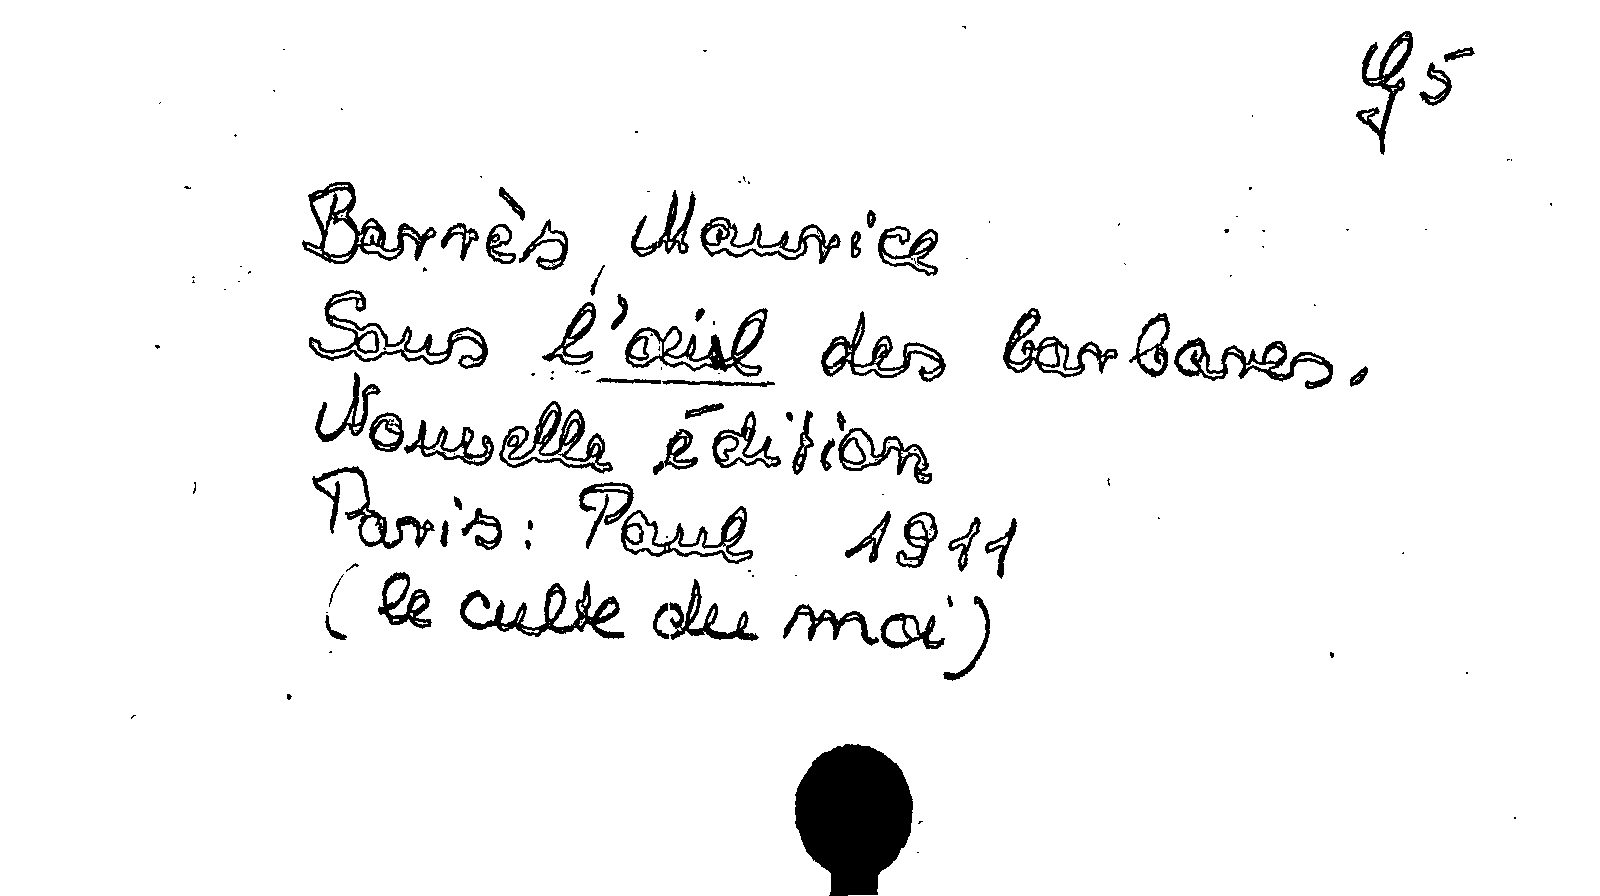 G 5
Barrès, Maurice
Sous l'œil des barbares.
Nouvelle édition
Paris: Paul 1911
(le culte du moi)